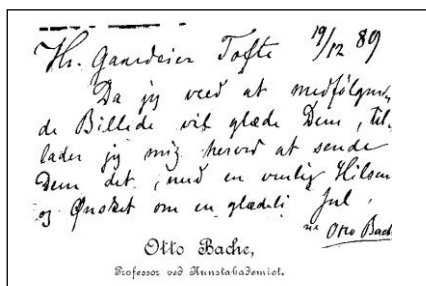 Hr. Gaardeier Tofte 19/12 89
Da jeg veed at medfølgen-
de Billede vil glæde Dem, til-
lader jeg mig herved at sende
Dem det, med en venlig Hilsen
og Ønsket om en glædeli Jul,
Otto Bach
Otto Bache,
Professor ved Kunstakademiet.